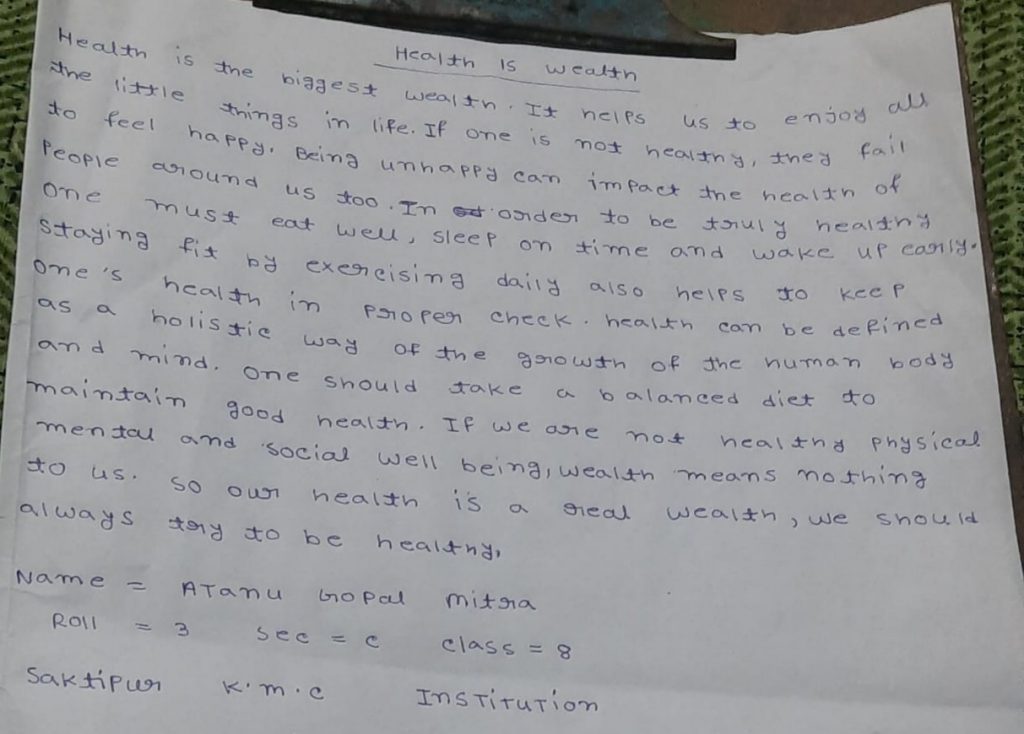 Health Is Wealth
Health is the biggest wealth. It helps us to enjoy all
the little things in life. If one is not healthy, they fail
to feel happy. Being unhappy can impact the health of
People around us too. In order to be truly healthy
one must eat well, sleep on time and wake up early.
Staying fit by exercising daily also helps to keep
one's health in proper check. health can be defined
as a holistic way of the growth of the human body
and mind. One should take a balanced diet to
maintain good health. If we are not healthy physical
mental and social well being, wealth means nothing
to us. So our health is a real wealth, we should
always try to be healthy.
Name = ATanu Gopal mitra
Roll = 3 Sec = C Class = 8
Saktipur K.m.c InsTiTuTion